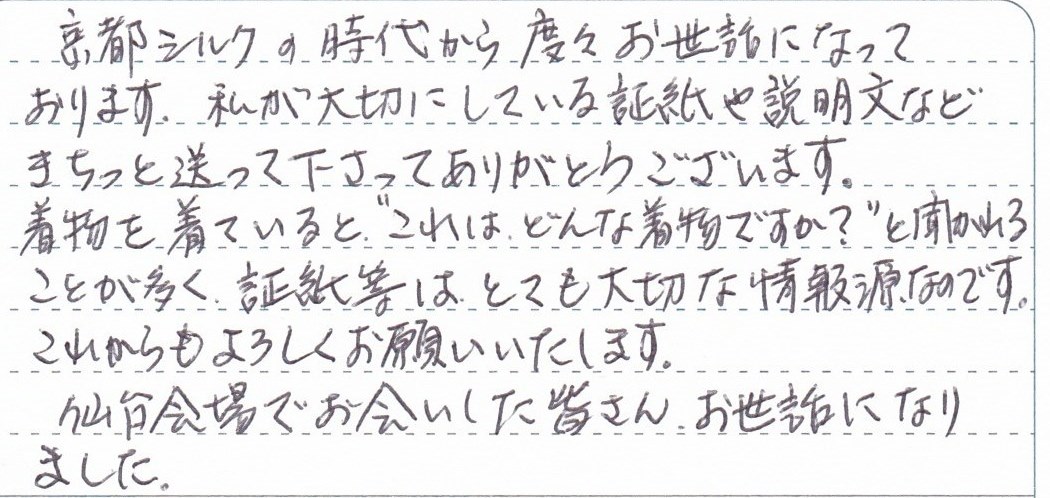 京都シルクの時代から度々お世話になって
おります。私が大切にしている証紙や説明文など
きちっと送って下さってありがとうございます。
着物を着ていると、“これは、どんな着物ですか？”と聞かれる
ことが多く、証紙等は、とても大切な情報源なのです。
これからもよろしくお願いいたします。
仙台会場でお会いした皆さん、お世話になり
ました。